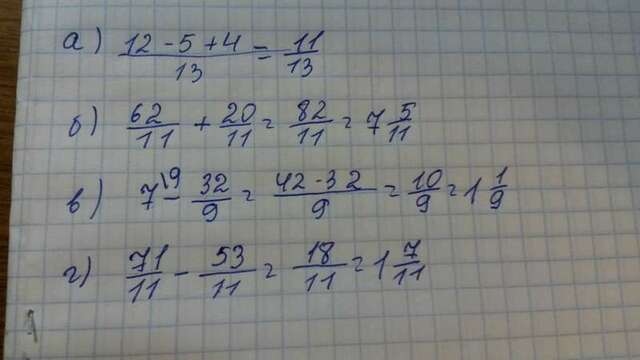 а) (12 - 5 + 4)/13 = 11/13
б) 62/11 + 20/11 = 82/11 = 7 5/11
в) 7^{\9} - 32/9 = (42 - 32)/9 = 10/9 = 1 1/9
г) 71/11 - 53/11 = 18/11 = 1 7/11